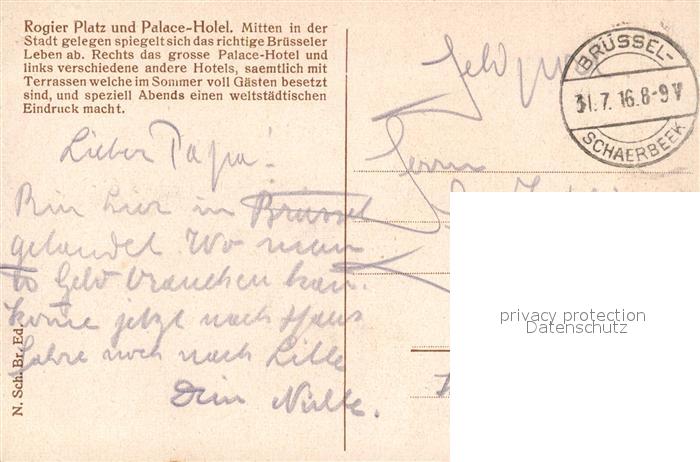 Rogier Platz und Palace-Holel. Mitten in der
Stadt gelegen spiegelt sich das richtige Brüsseler
Leben ab. Rechts das grosse Palace-Hotel und
links verschiedene andere Hotels, saemtlich mit
Terrassen welche im Sommer voll Gästen besetzt
sind, und speziell Abends einen weltstädtischen
Eindruck macht.
Lieber Papa!
Bin hier in Brüssel
gelandet Wo man
so Geld brauchen kan.
komme jetzt nach Haus
fahre noch nach Lille
Dein
N. Sch. Br. Ed.
BRÜSSEL-
31.7.16.8-9V
SCHAERBEEK
Herrn
privacy protection
Datenschutz